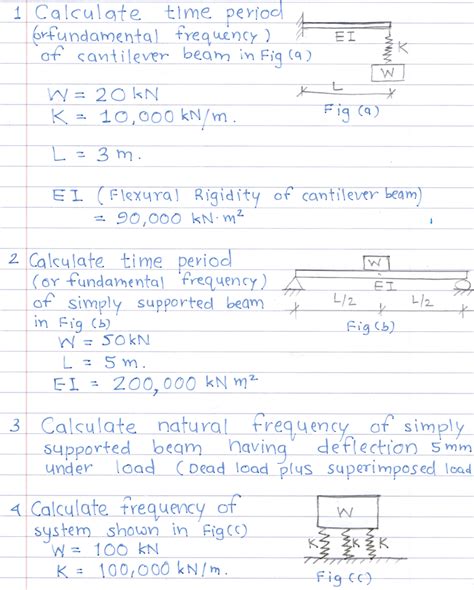 1 Calculate time period
(or fundamental frequency)
of cantilever beam in Fig (a)
EI
K
W
L
Fig (a)
W = 20 kN
K = 10,000 kN/m.
L = 3 m.
EI (Flexural Rigidity of cantilever beam)
= 90,000 kN·m²
2 Calculate time period
(or fundamental frequency)
of simply supported beam
in Fig (b)
W
EI
L/2 L/2
Fig (b)
W = 50kN
L = 5 m.
EI = 200,000 kN m²
3 Calculate natural frequency of simply
supported beam having deflection 5 mm
under load (Dead load plus superimposed load
4 Calculate frequency of
system shown in Fig(c)
W
K K K
Fig (c)
W = 100 kN
K = 100,000 kN/m.